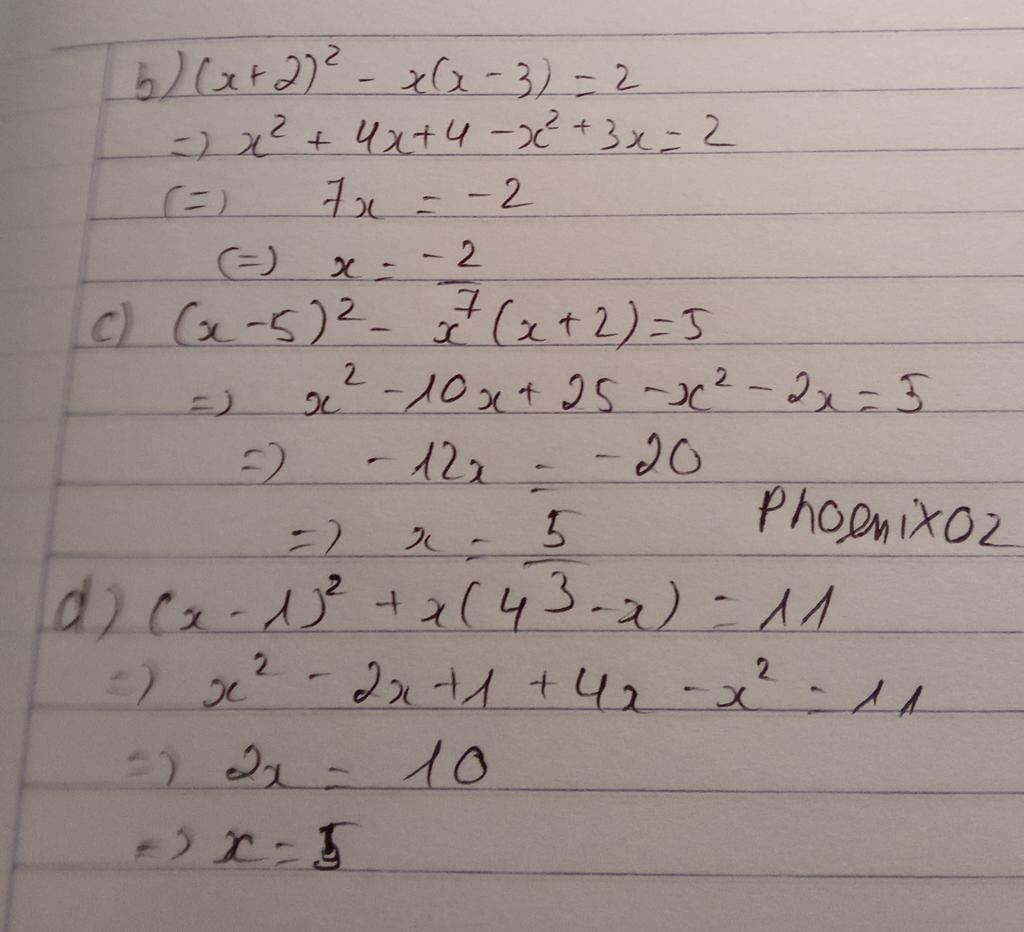 b) (x+2)² - x(x-3) = 2
=) x² + 4x+4 -x² + 3x = 2
(=) 7x = -2
(=) x = -2/7
c) (x-5)² - x(x+2) = 5
=) x² -10x + 25 -x² - 2x = 5
=) -12x = -20
=) x = 5/3
PhoenixOz
d) (x-1)² + x(4-x) = 11
=) x² - 2x+1 +4x -x² = 11
=) 2x = 10
=) x = 5